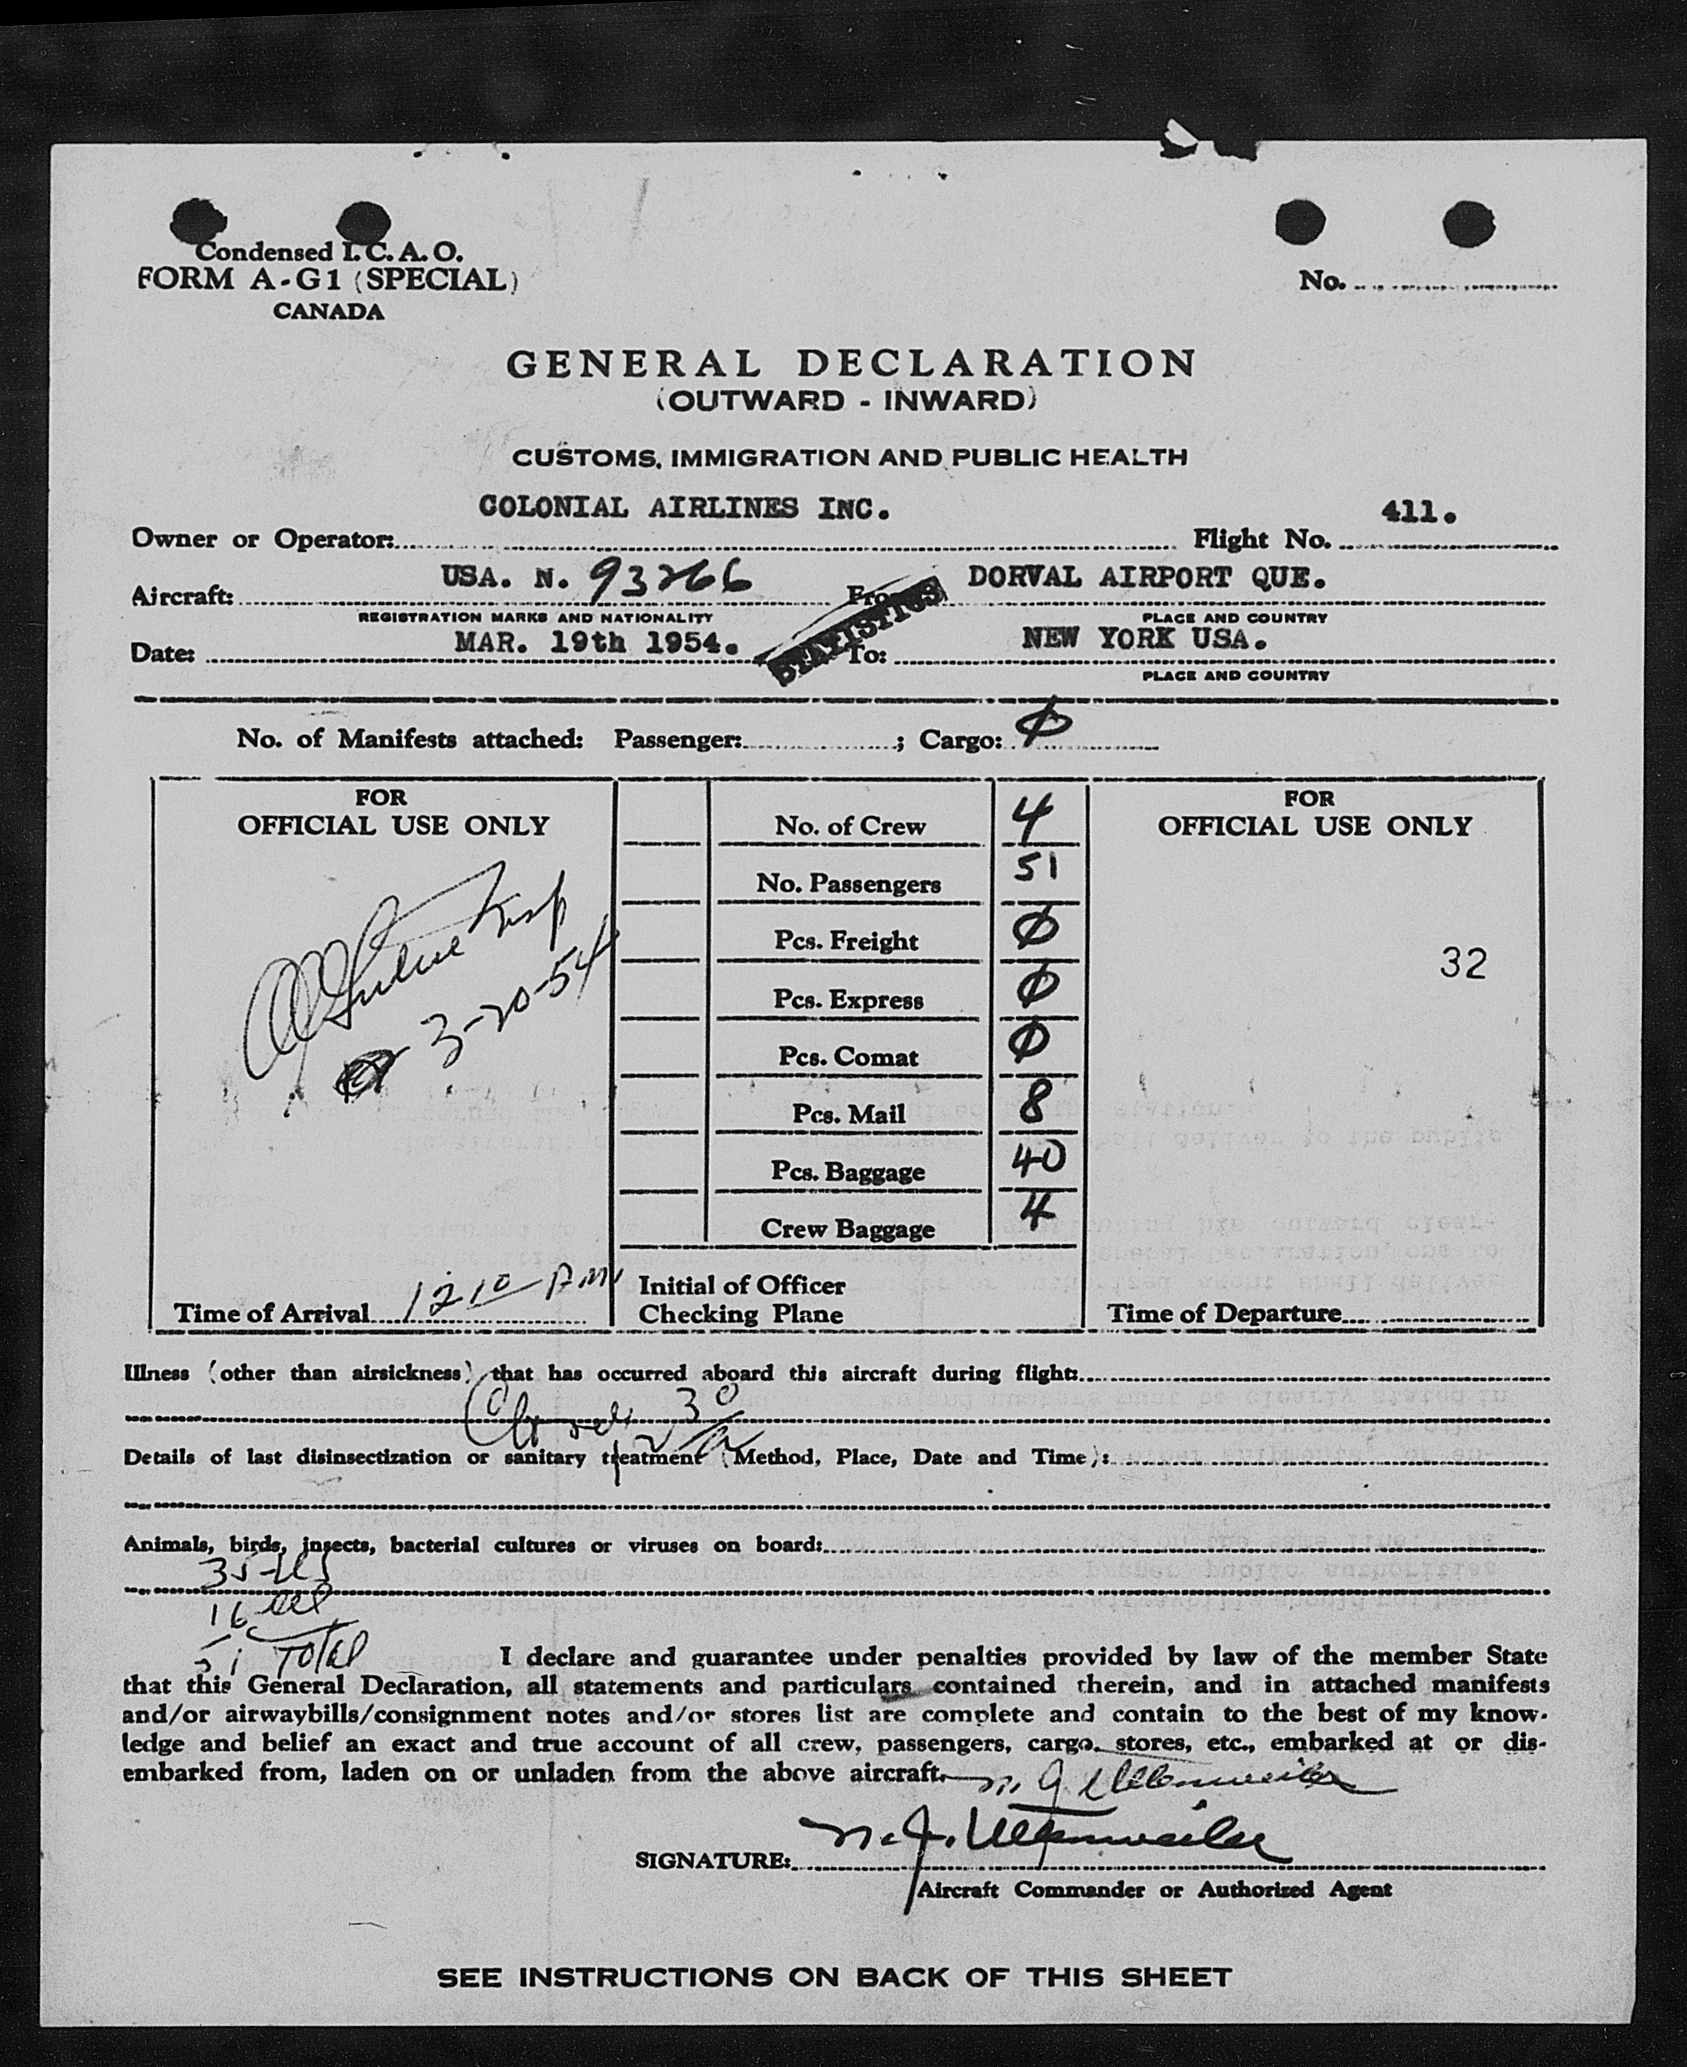 Condensed I.C.A.O.
FORM A-G1 (SPECIAL)
CANADA
No.
GENERAL DECLARATION
(OUTWARD - INWARD)
CUSTOMS, IMMIGRATION AND PUBLIC HEALTH
Owner or Operator: COLONIAL AIRLINES INC. Flight No. 411.
Aircraft: USA. N. 93266 From DORVAL AIRPORT QUE.
REGISTRATION MARKS AND NATIONALITY PLACE AND COUNTRY
STATISTICS
Date: MAR. 19th 1954. To: NEW YORK USA.
PLACE AND COUNTRY
No. of Manifests attached: Passenger: ; Cargo: Ø
FOR
OFFICIAL USE ONLY
Insp
3-20-54
Time of Arrival 1210 AM
No. of Crew 4
No. Passengers 51
Pcs. Freight Ø
Pcs. Express Ø
Pcs. Comat Ø
Pcs. Mail 8
Pcs. Baggage 40
Crew Baggage 4
Initial of Officer
Checking Plane
FOR
OFFICIAL USE ONLY
32
Time of Departure
Illness (other than airsickness) that has occurred aboard this aircraft during flight:
Details of last disinsectization or sanitary treatment (Method, Place, Date and Time):
Animals, birds, insects, bacterial cultures or viruses on board:
35-US
16
51 Total
I declare and guarantee under penalties provided by law of the member State
that this General Declaration, all statements and particulars contained therein, and in attached manifests
and/or airwaybills/consignment notes and/or stores list are complete and contain to the best of my know-
ledge and belief an exact and true account of all crew, passengers, cargo, stores, etc., embarked at or dis-
embarked from, laden on or unladen from the above aircraft.
SIGNATURE:
Aircraft Commander or Authorized Agent
SEE INSTRUCTIONS ON BACK OF THIS SHEET